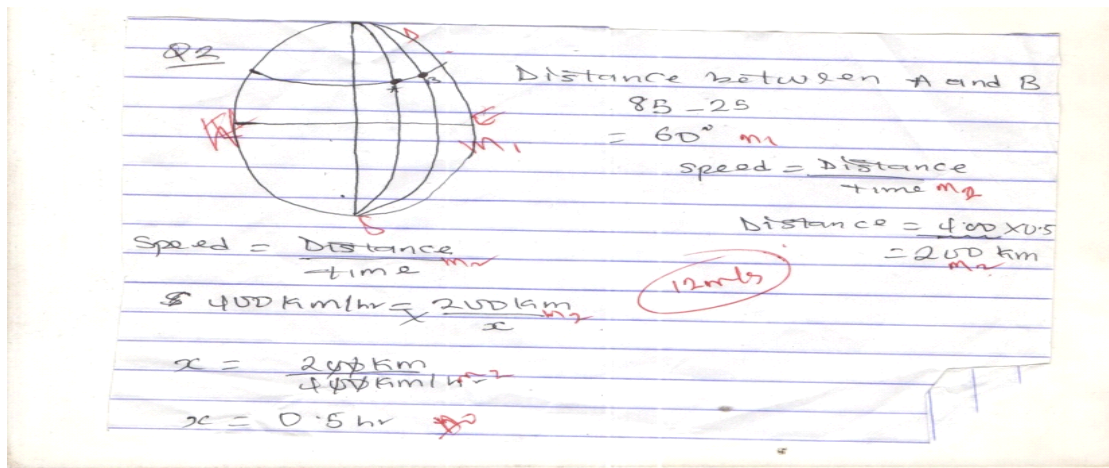 Q2
D
A
B
W
E
M1
S
Distance between A and B
85 - 25
= 60° m1
Speed = Distance
time m2
Distance = 400 x 0.5
= 200 km
m2
Speed = Distance
time m2
12mks
400 km/hr = 200 km m2
x
x = 200 km
400 km/hr m2
x = 0.5 hr